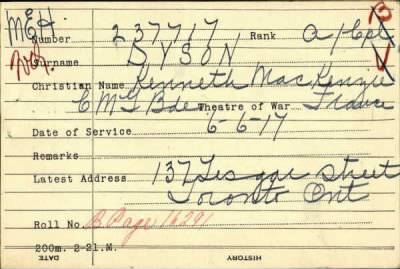 M.E.H. Number 237717 Rank A/Cpl B
Surname DYSON V
Christian Name Kenneth MacKenzie
C M G Bde Theatre of War France
Date of Service 6-6-17
Remarks
Latest Address 137 Lisgar Street
Toronto Ont
Roll No. B Page 16291
200m. 2-21. M. HISTORY
DATE